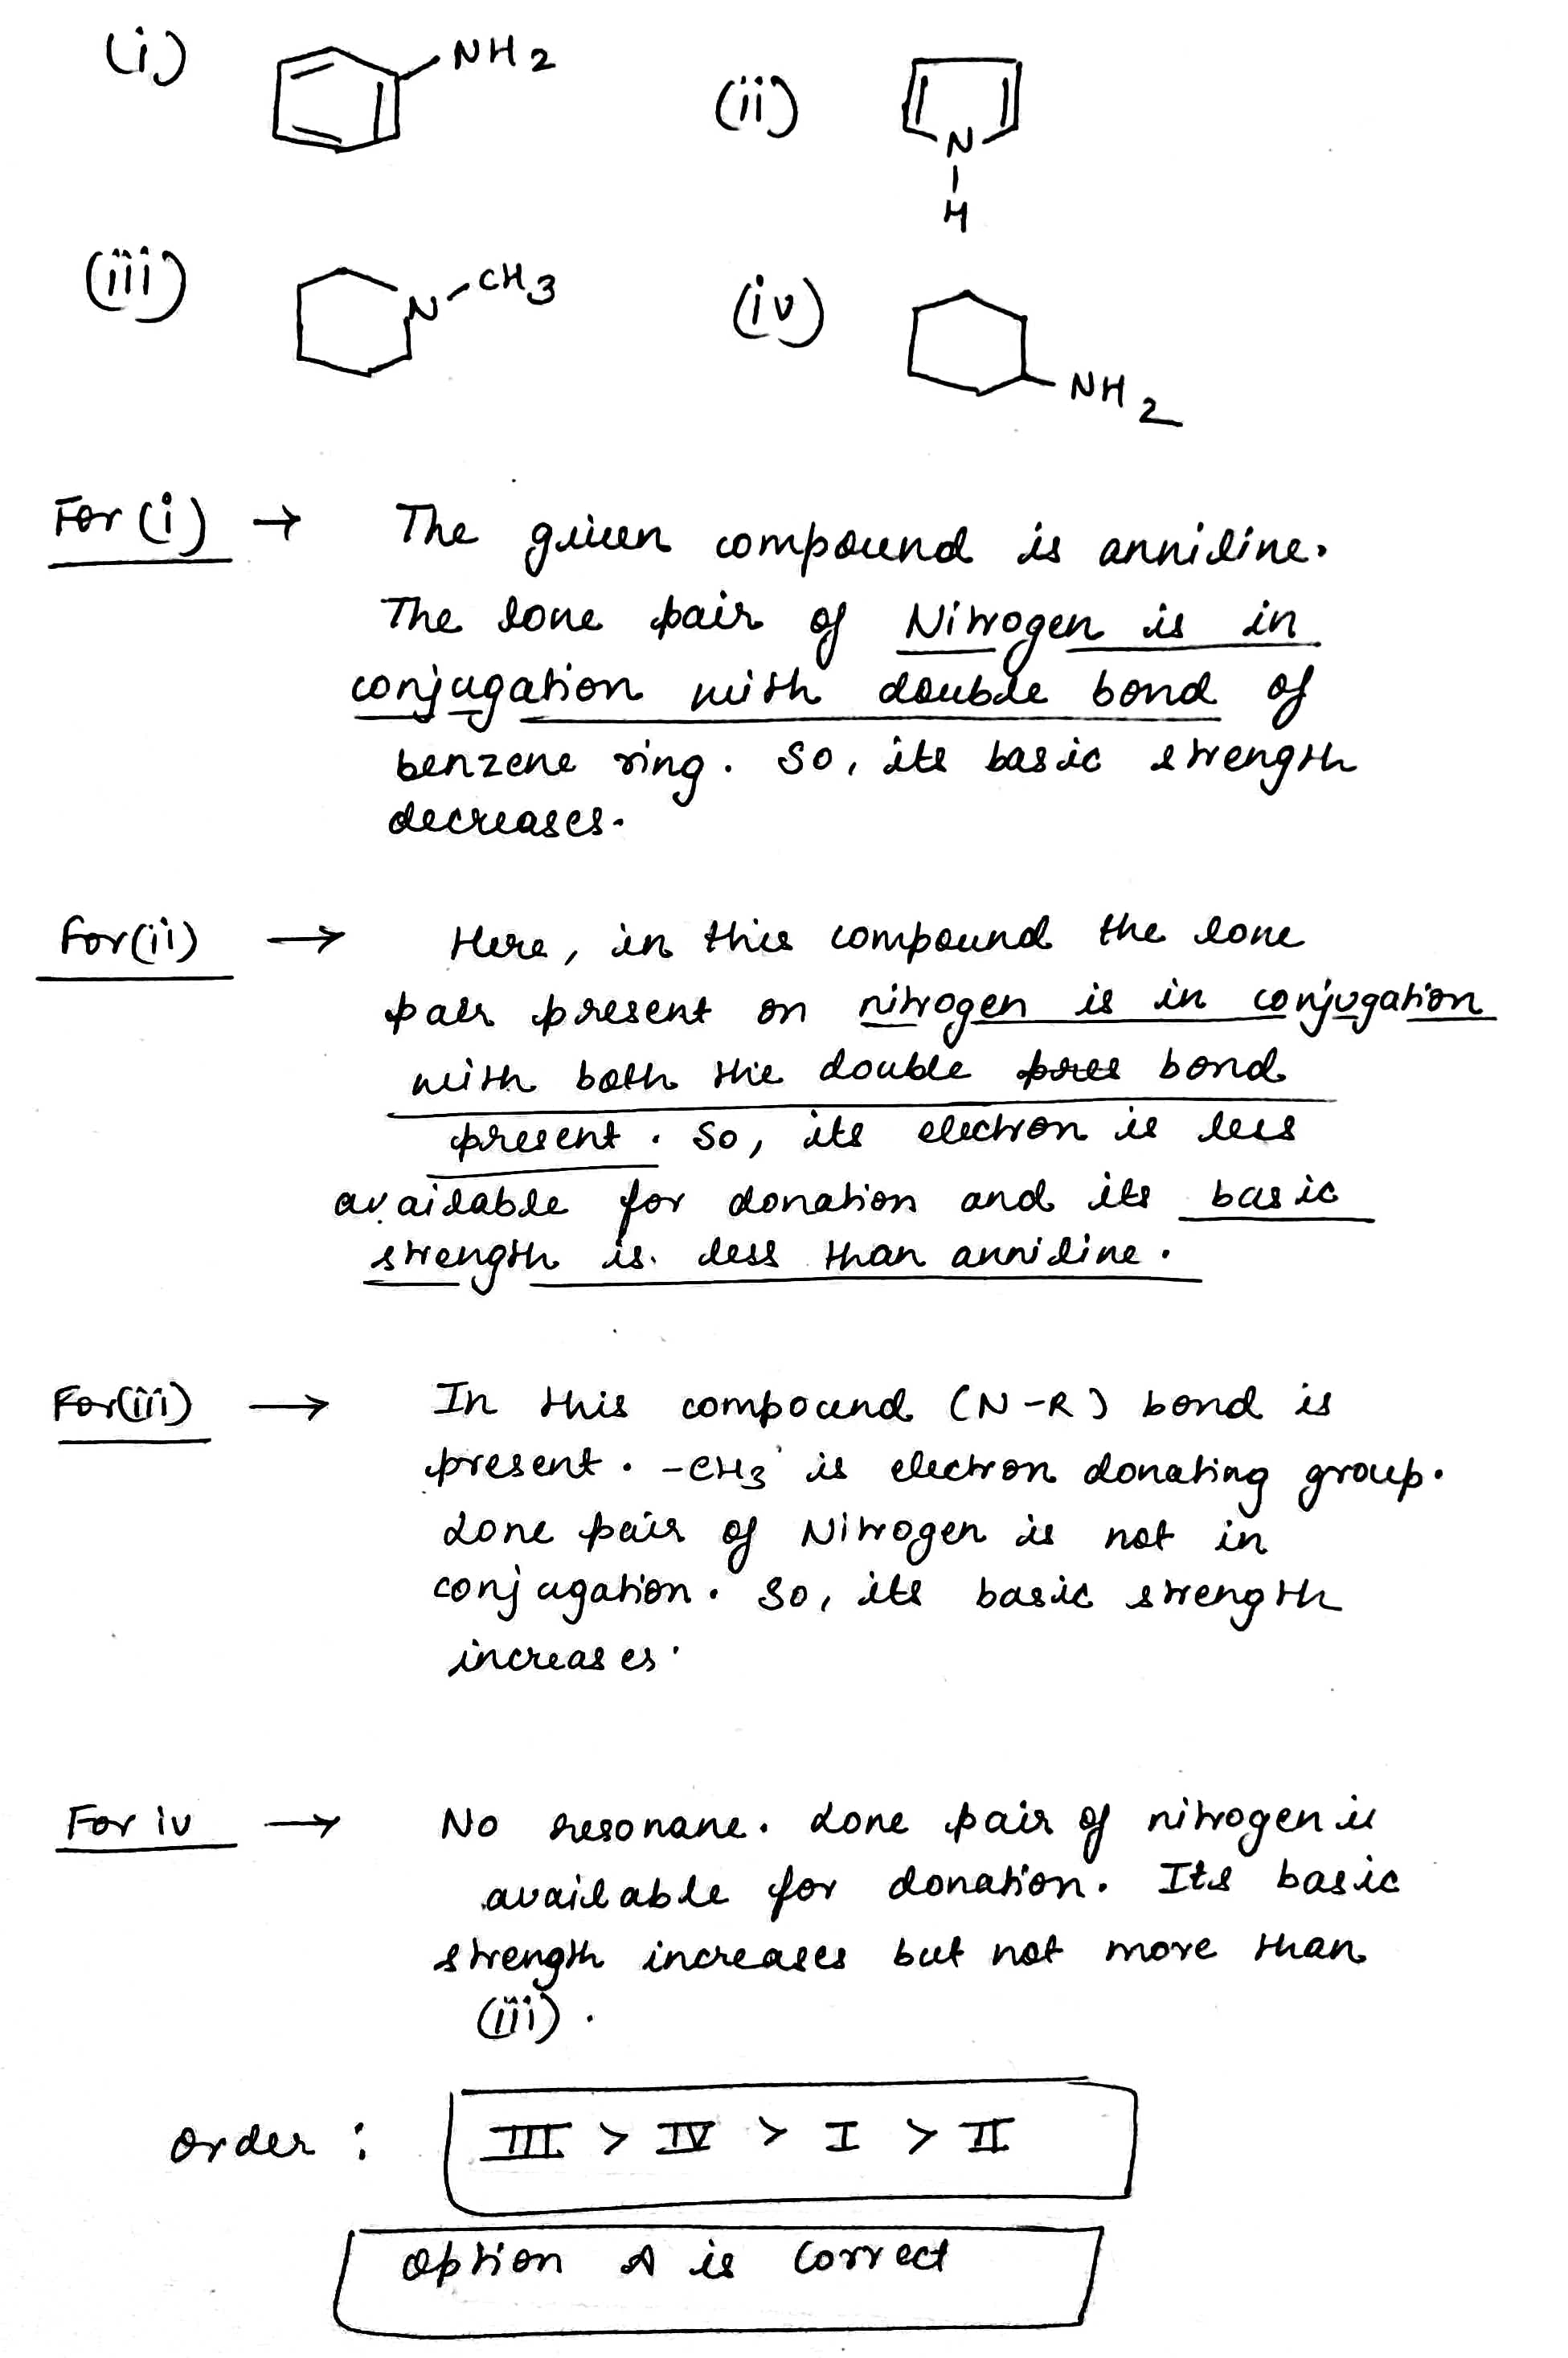 (i) NH2
(ii) N
H
(iii) N-CH3
(iv) NH2
For (i) → The given compound is anniline.
The lone pair of Nitrogen is in
conjugation with double bond of
benzene ring. So, its basic strength
decreases.
For(ii) → Here, in this compound the lone
pair present on nitrogen is in conjugation
with both the double pres bond
present. So, its electron is less
available for donation and its basic
strength is less than anniline.
For(iii) → In this compound (N-R) bond is
present. -CH3 is electron donating group.
Lone pair of Nitrogen is not in
conjugation. So, its basic strength
increases.
For iv → No resonane. Lone pair of nitrogen is
available for donation. Its basic
strength increases but not more than
(iii).
Order : III > IV > I > II
Option A is Correct